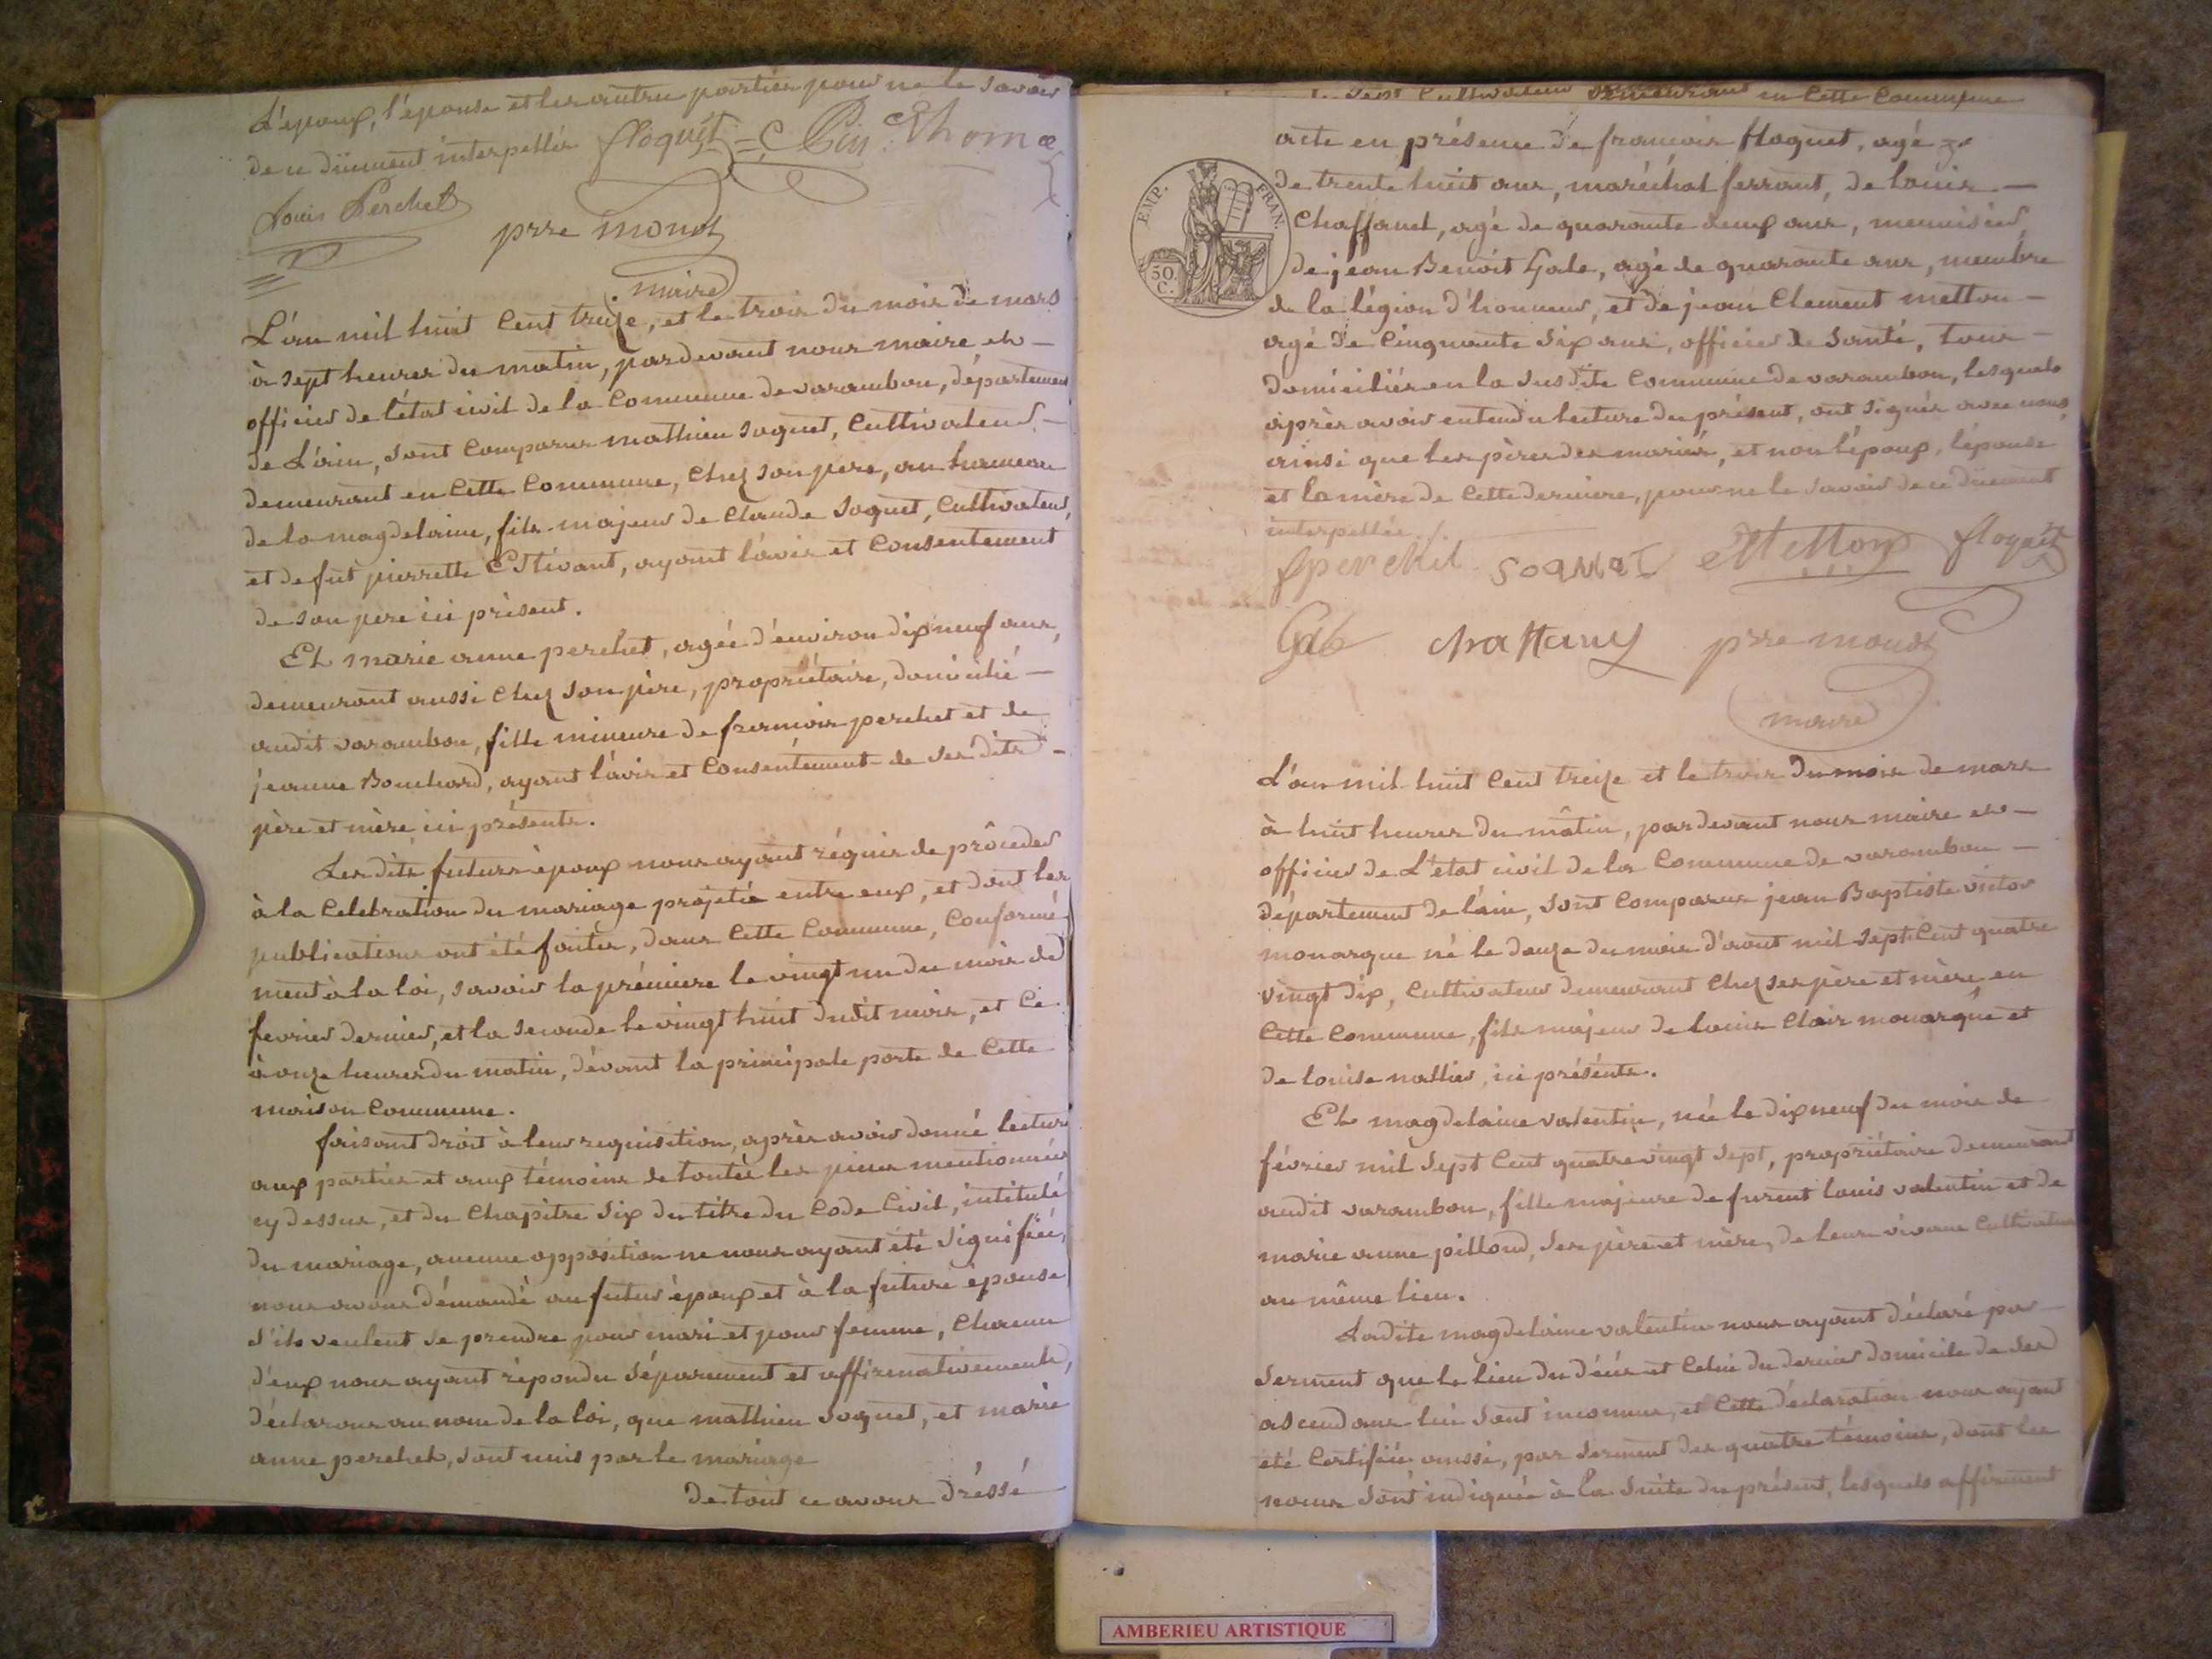 L'époux, l'épouse et les autres parties pour ne le savoir
de ce düment interpellés floquet Thome
Louis Perchet
prre monod
maire
L'an mil huit cent treize, et le trois du mois de mars
à sept heures du matin, pardevant nous maire et
officier de l'état civil de la commune de varambon, département
de L'ain, sont comparus mathieu soquet, cultivateur
demeurant en cette commune, chez son pere, au hameau
de la magdelaine, fils majeur de Claude soquet, cultivateur,
et de fut pierrette Estivant, ayant l'avis et consentement
de son pere ici présent.
Et marie anne perchet, agée d'environ dix neuf ans,
demeurant aussi chez son père, propriétaire, domicilié
audit varambon, fille mineure de françois perchet et de
jeanne Bouchard, ayant l'avis et consentement de ses dits
père et mère ici présents.
Lesdits futurs époux nous ayant réquis de procéder
à la Celebration du mariage projetté entre eux, et dont les
publications ont été faites, dans cette commune, conformé
ment à la loi, savoir la prémiere le vingt un du mois de
fevrier dernier, et la seconde le vingt huit dudit mois, et ce
à onze heures du matin, dévant la principale porte de cette
maison commune.
faisant droit à leur requisition, après avoir donné lecture
aux parties et aux témoins de toutes les pieces mentionnées
cy dessus, et du chapitre six du titre du Code Civil, intitulé
du mariage, aucune opposition ne nous ayant été signifiée,
nous avons démandé au futur époux et à la future épouse
s'ils veulent se prendre pour mari et pour femme, chacun
d'eux nous ayant répondu séparement et affirmativement,
déclarons au nom de la loi, que mathieu soquet, et marie
anne perchet, sont unis par le mariage
de tout ce avons dréssé
cultivateur demeurant en cette commune
acte en présence de françois floquet, agé
de trente huit ans, maréchal ferrant, de louis
Chaffanel, agé de quarante deux ans, menuisier,
de jean Benoit Gale, agé de quarante ans, membre
de la légion d'honneur, et de jean Clement metton
agé de cinquante six ans, officier de santé, tous
domiciliés en la susdite commune de varambon, lesquels
après avoir entendu lecture du présent, ont signés avec nous,
ainsi que les pères des mariés, et non l'époux, l'épouse
et la mère de cette derniere, pour ne le savoir de ce düement
interpellés.
EMP. FRAN.
50 C.
fperchet soquet Metton floquet
Gale prre monod
maire
L'an mil huit cent treize et le trois du mois de mars
à huit heures du mâtin, pardevant nous maire et
officier de L'état civil de la commune de varambon
département de l'ain, sont comparus jean Baptiste victor
monarque né le douze du mois d'aout mil sept cent quatre
vingt dix, cultivateur demeurant chez ses père et mère, en
cette commune, fils majeur de louis Clair monarque et
de louise nallier, ici présents.
Et magdelaine valentin, née le dix neuf du mois de
février mil sept cent quatre vingt sept, propriétaire demeurant
audit varambon, fille majeure de furent louis valentin et de
marie anne pilloud, ses père et mère, de leur vivant cultivateurs
au même lieu.
Ladite magdelaine valentin nous ayant déclaré par
serment que le lieu du décès et celui du dernier domicile de ses
ascendans lui sont inconnus, et cette déclaration nous ayant
été certifiée aussi, par serment des quatre témoins, dont les
noms sont indiqués à la suite du présent, lesquels affirment
AMBERIEU ARTISTIQUE